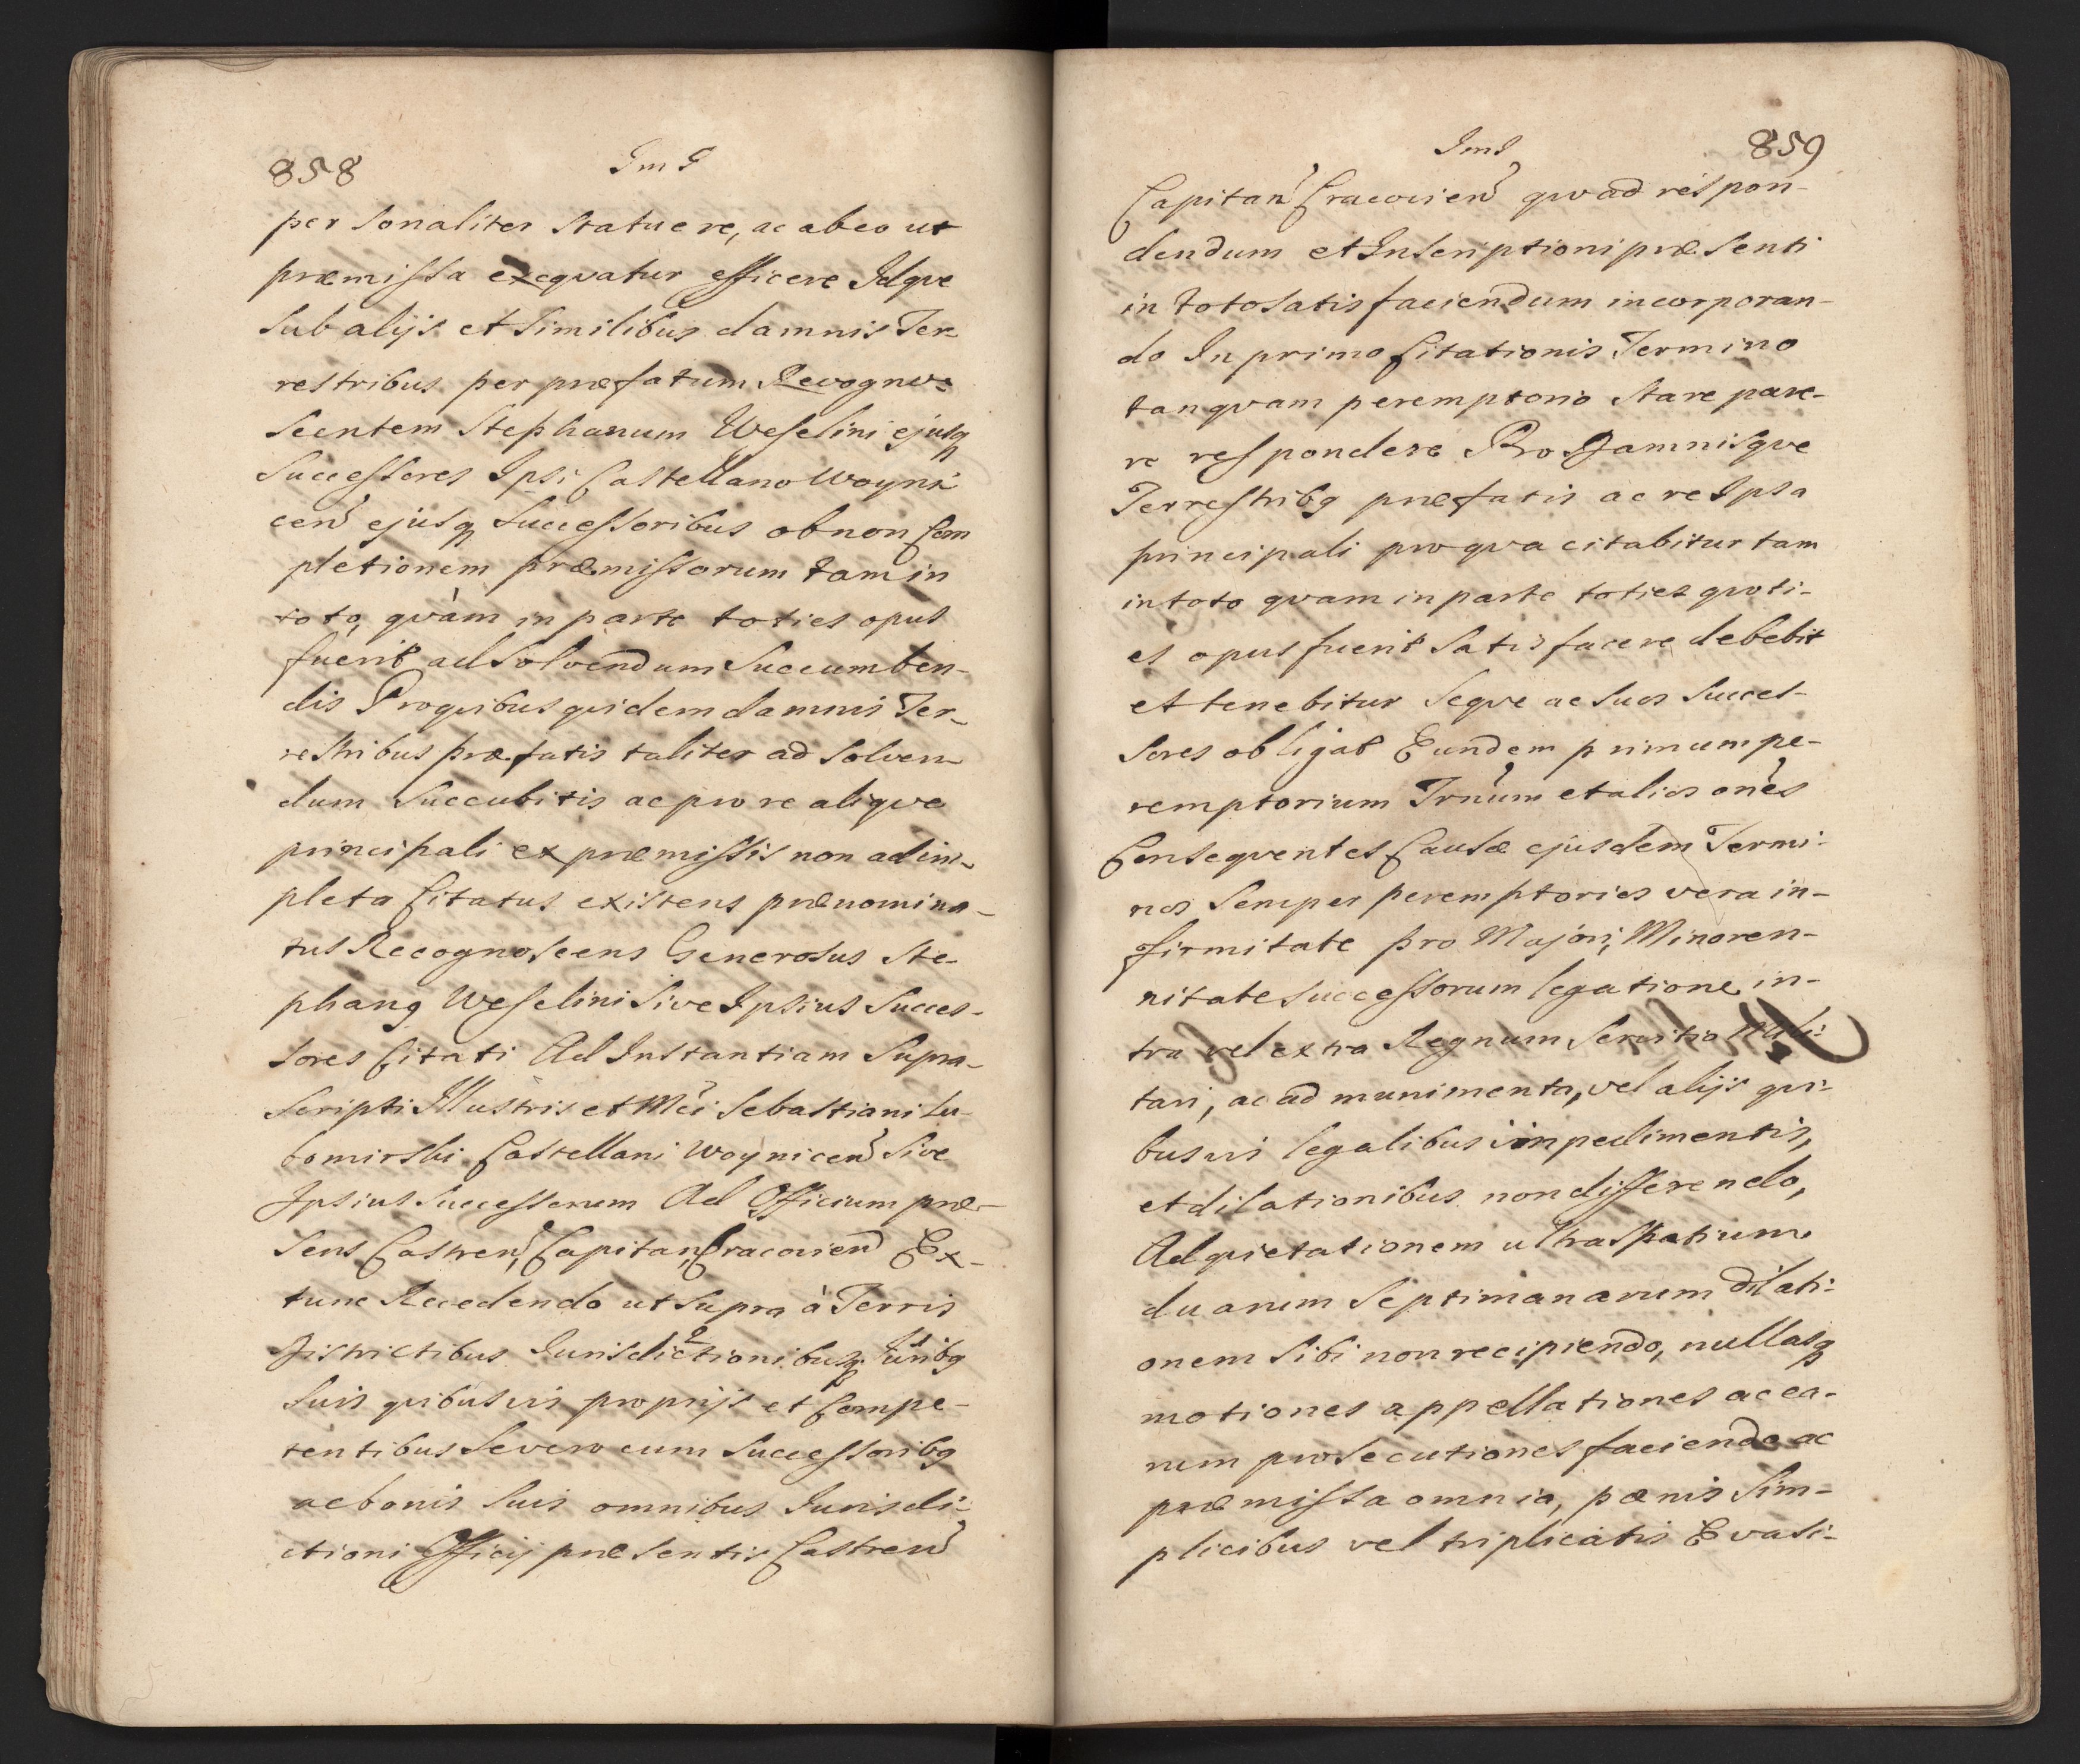 858
Jm J
personaliter statuere, ac ab eo ut
præmissa exequatur efficere Idque
sub alijs et similibus damnis Ter-
restribus per præfatum Recogno-
scentem Stephanum Weselini ejusq
Successores Ipsi Castellano Woyni
cen ejusq Successoribus ob non Com
pletionem præmissorum tam in
toto, quàm in parte toties opus
fuerit ad solvendum Succumben-
dis Pro quibus quidem damnis Ter-
restribus præfatis taliter ad solven-
dum Succubitis ac pro re aliqve
principali ex præmissis non adim-
pleta Citatus existens prænomina-
tus Recognoscens Generosus Ste-
phang Weselini Sive Ipsius Succes-
sores Citati Ad Instantiam Supra-
scripti Illustris et Mci Sebastiani Lu-
bomirski Castellani Woynicen Sive
Ipsius Successorum Ad Officium præ-
sens Castren, Capitan, Cracovien Ex-
tunc Recedendo ut supra à Terris
Districtibus Jurisdictionibusq Juribg
suis quibusvis proprijs et Compe-
tentibus se vero cum Successoribg
ac bonis suis omnibus Jurisdi-
ctioni Officij præsentis Castren
859
JmJ
Capitan Cracovien qvo ad respon-
dendum et Inscriptioni præsenti
in toto satisfaciendum incorporan-
do In primo Citationis Termino
tanqvam peremptorio stare pare-
re respondere Pro Damnisqve
Terrestribg præfatis ac re Ipsa
principali pro qva citabitur tam
in toto qvam in parte toties qvoti-
es opus fuerit satisfacere debebit
et tenebitur seqve ac suos succes-
sores obligat Eundem primum pe-
remptorium Trnum et alios ones
Conseqventes Causæ ejusdem Termi-
nos semper peremptories vera in-
firmitate pro Majori, Minoren-
nitate successorum legatione in-
tra vel extra Regnum Servitio Mili-
tari, ac ad munimenta, vel alijs qvi-
busvis legalibus impedimentis,
et dilationibus non differendo,
Ad qvietationem ultra spatium
duarum septimanarum dilati-
onem sibi non recipiendo, nullasq
motiones appellationes ac ea-
rum prosecutiones faciendo ac
præmissa omnia, pænis sim-
plicibus vel triplicatis Evasi-